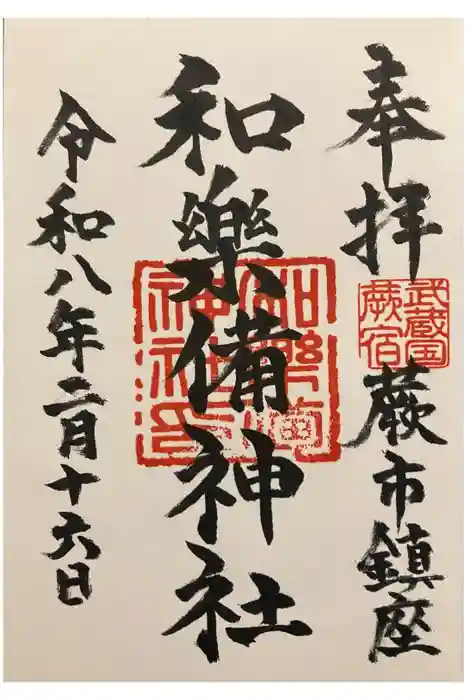 奉拝
武蔵国
蕨宿
蕨市鎮座
和樂備神社
令和八年二月十六日